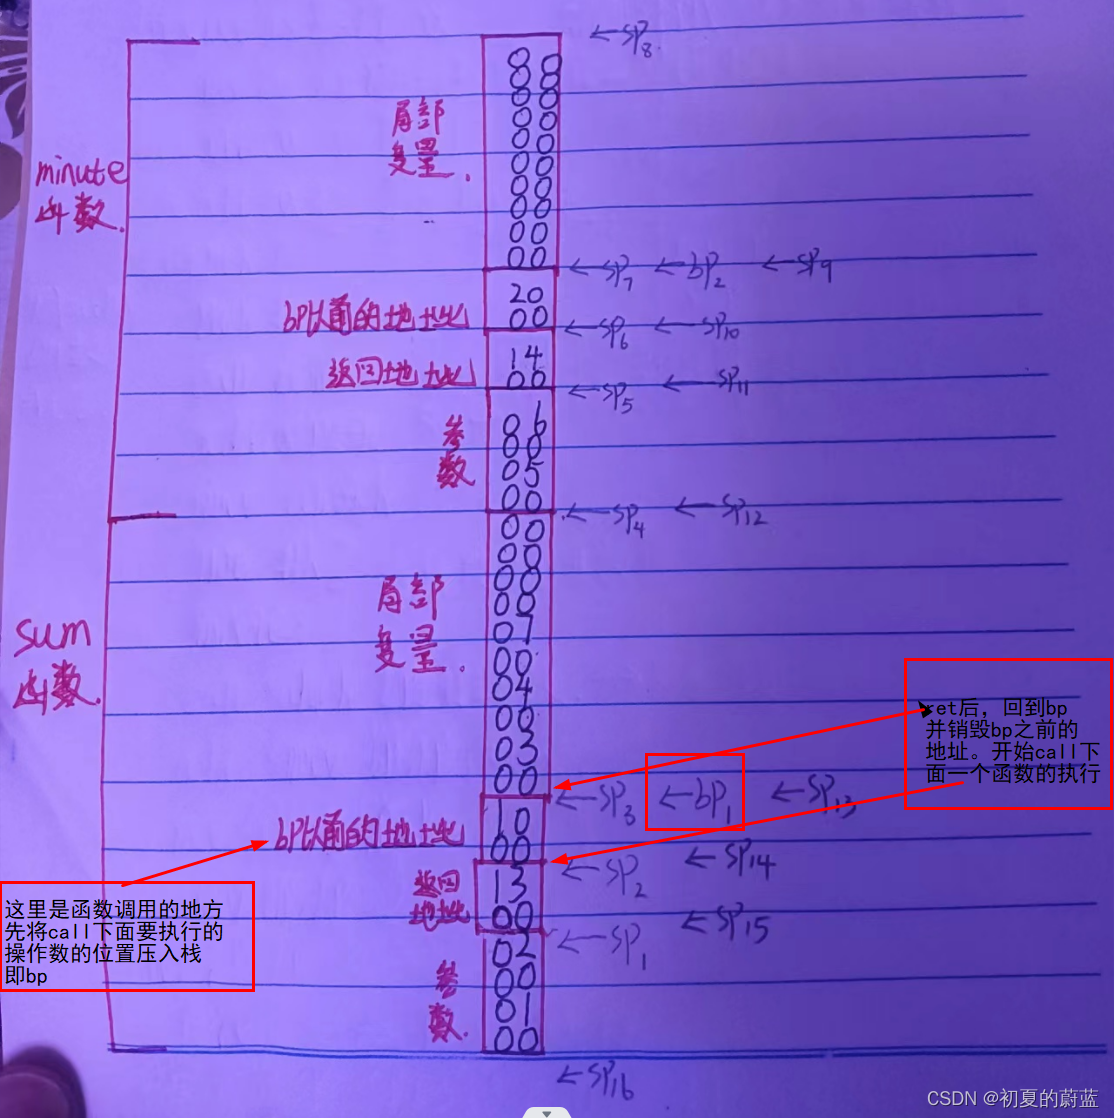 ←SP8
00
00
00
00
00
00
00
00
00
局部
变量.
minute
函数.
←SP7 ←bP2 ←SP9
bP以前的地址
20
00
←SP6 ←SP10
返回地址
14
00
←SP5 ←SP11
参
数
06
00
05
00
←SP4 ←SP12
00
00
00
00
07
00
04
00
03
00
局部
变量.
sum
函数.
ret后，回到bp
并销毁bp之前的
地址。开始call下
面一个函数的执行
←SP3 ←bP1 ←SP13
bP以前的地址
10
00
←SP2 ←SP14
返回
地址
13
00
←SP1 ←SP15
这里是函数调用的地方
先将call下面要执行的
操作数的位置压入栈
即bp
参
数.
02
00
01
00
←SP16
CSDN @初夏的蔚蓝